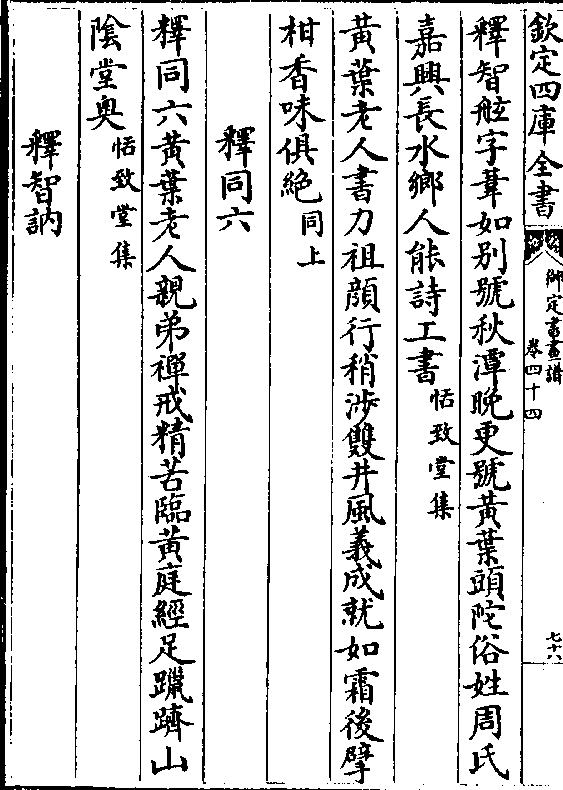 欽定四庫全書
御定書畫譜
卷四十四
七十六
釋智舷字葦如别號秋潭晚更號黄葉頭陀俗姓周氏
嘉興長水鄉人能詩工書恬致堂集
黄葉老人書力祖顔行稍涉雙井風義成就如霜後擘
柑香味俱絶同上
釋同六
釋同六黄葉老人親弟禪戒精苦臨黄庭經足躐躋山
陰堂奥恬致堂集
釋智訥